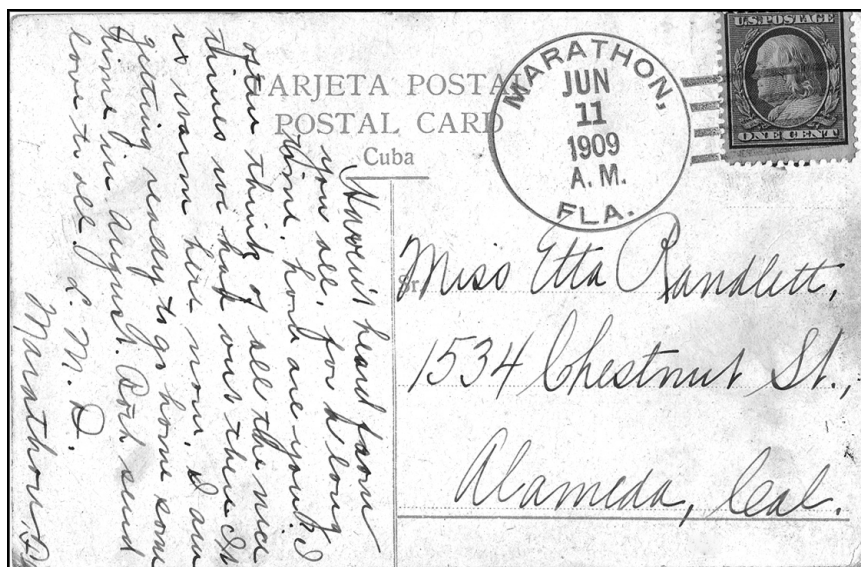 TARJETA POSTAL
POSTAL CARD
Cuba
MARATHON,
JUN
11
1909
A. M.
FLA.
U.S. POSTAGE
ONE CENT
Sr.
Miss Etta Randlett,
1534 Chestnut St.,
Alameda, Cal.
Haven't heard from
you all, for a long
time. how are you? I
often think of all the nice
times we had out there. It
is warm here now. I am
getting ready to go home some
time in August. Both send
love to all. L. M. D.
Marathon, Fla